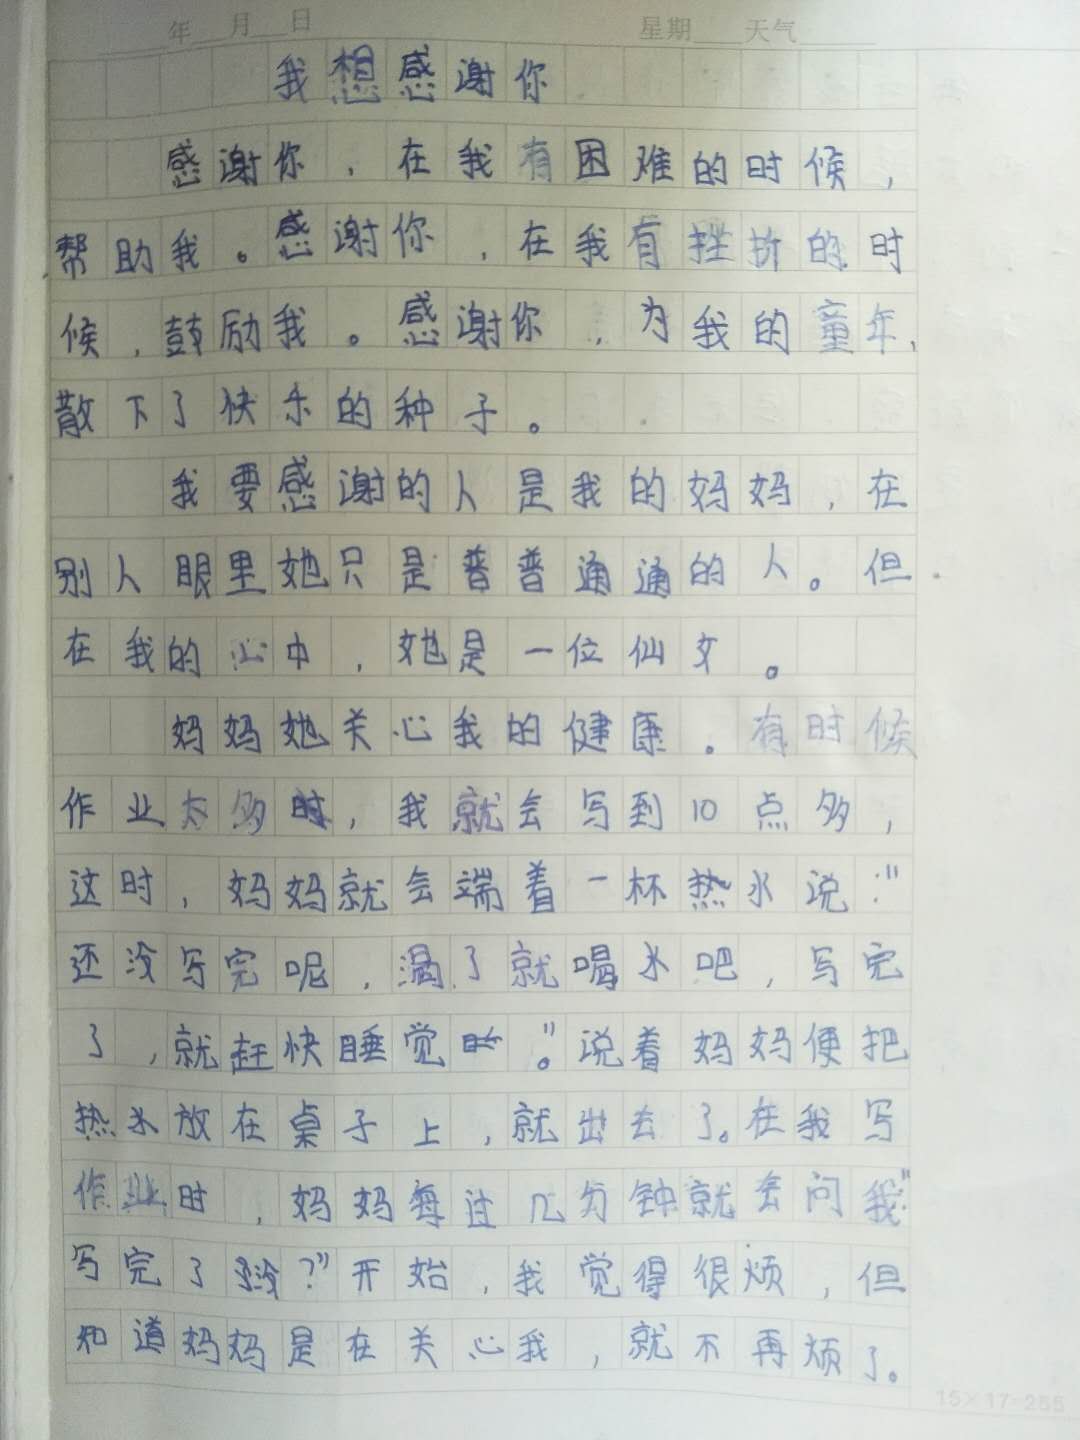 年 月 日 星期 天气
我想感谢你
感谢你，在我有困难的时候，
帮助我。感谢你，在我有挫折的时
候，鼓励我。感谢你，为我的童年，
散下了快乐的种子。
我要感谢的人是我的妈妈，在
别人眼里她只是普普通通的人。但
在我的心中，她是一位仙女。
妈妈她关心我的健康。有时候
作业太多时，我就会写到10点多，
这时，妈妈就会端着一杯热水说："
还没写完呢，渴了就喝水吧，写完
了，就赶快睡觉。"说着妈妈便把
热水放在桌子上，就出去了。在我写
作业时，妈妈每过几分钟就会问我"
写完了没？"开始，我觉得很烦，但
知道妈妈是在关心我，就不再烦了。
15×17=255